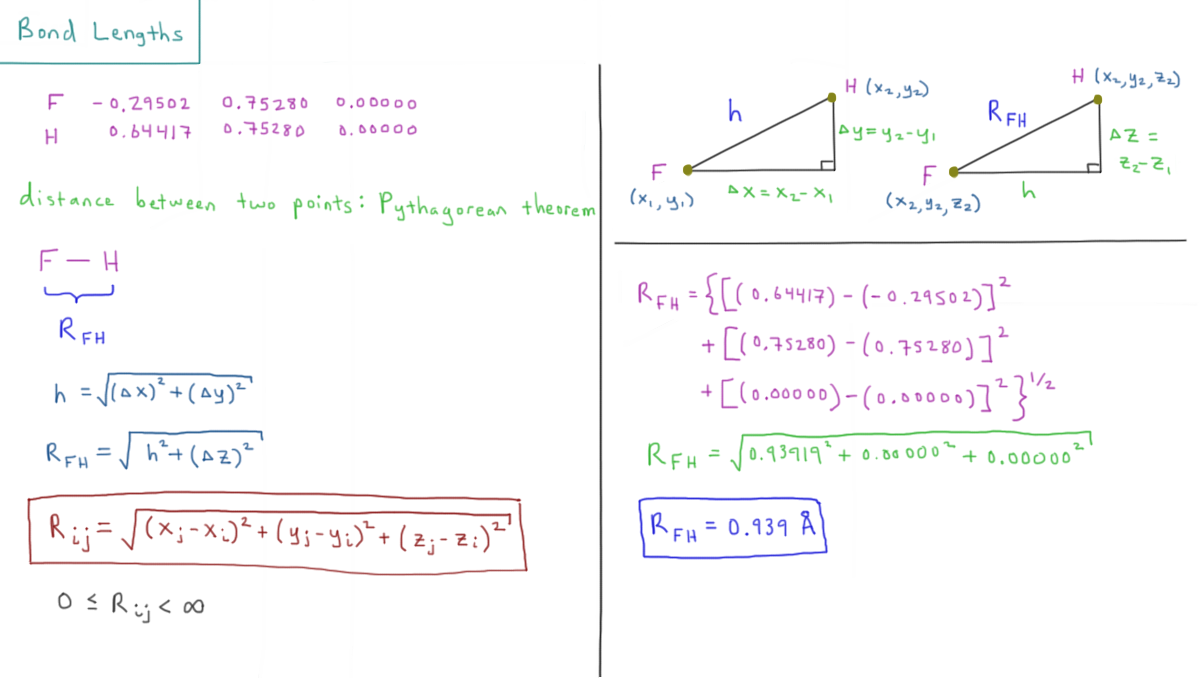 Bond Lengths
F -0.29502 0.75280 0.00000
H 0.64417 0.75280 0.00000
distance between two points: Pythagorean theorem
F — H
R_FH
h = √((Δx)² + (Δy)²)
R_FH = √(h² + (Δz)²)
R_ij = √((x_j - x_i)² + (y_j - y_i)² + (z_j - z_i)²)
0 ≤ R_ij < ∞
H (x₂, y₂)
h
Δy = y₂ - y₁
F
(x₁, y₁)
Δx = x₂ - x₁
H (x₂, y₂, z₂)
R_FH
ΔZ =
z₂ - z₁
F
h
(x₂, y₂, z₂)
R_FH = {[(0.64417) - (-0.29502)]²
+ [(0.75280) - (0.75280)]²
+ [(0.00000) - (0.00000)]²}^1/2
R_FH = √(0.93919² + 0.00000² + 0.00000²)
R_FH = 0.939 Å